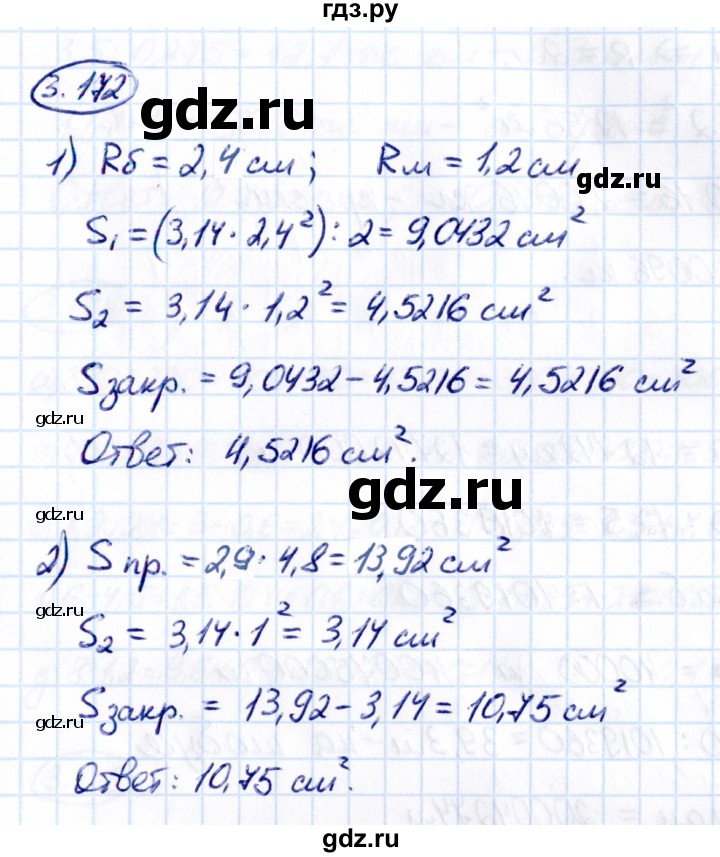 гдз.ру
3.172
gdz.ru
1) Rб = 2,4 см; Rм = 1,2 см
gdz.ru
S₁ = (3,14 · 2,4²) : 2 = 9,0432 см²
S₂ = 3,14 · 1,2² = 4,5216 см²
Sзакр. = 9,0432 – 4,5216 = 4,5216 см²
gdz.ru
Ответ: 4,5216 см².
gdz.ru
gdz.ru
2) Sпр. = 2,9 · 4,8 = 13,92 см²
gdz.ru
S₂ = 3,14 · 1² = 3,14 см²
Sзакр. = 13,92 – 3,14 = 10,75 см²
gdz.ru
Ответ: 10,75 см².
gdz.ru
gdz.ru